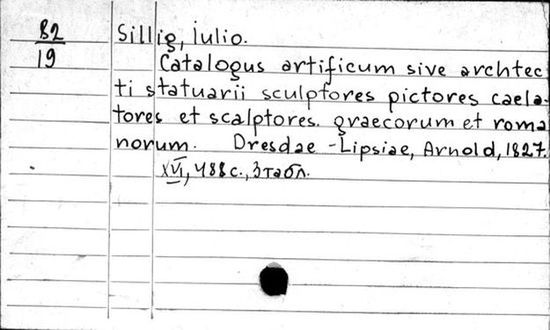 82
19
Sillig, iulio.
Catalogus artificum sive archtec
ti statuarii sculptores pictores caela-
tores et scalptores. graecorum et roma
norum. Dresdae - Lipsiae, Arnold, 1827.
XVI, 488 с., 3 табл.